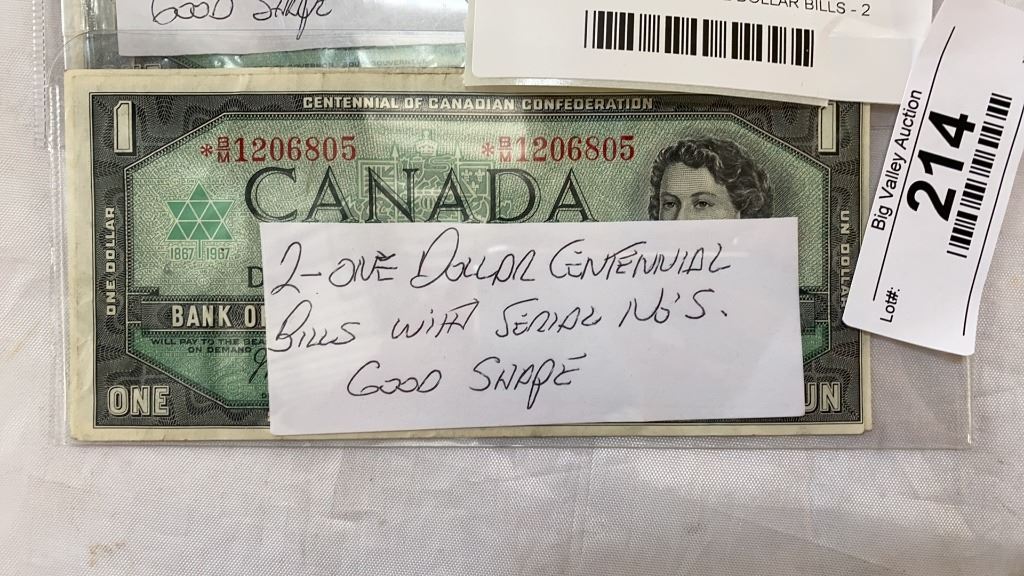 GOOD SHAPE
DOLLAR BILLS - 2
CENTENNIAL OF CANADIAN CONFEDERATION
1
*B/M1206805 *B/M1206805
CANADA
1867 1967
ONE DOLLAR
UN DOLLAR
BANK O
WILL PAY TO THE BEA
ON DEMAND
ONE
UN
2-ONE DOLLAR CENTENNIAL
BILLS WITH SERIAL NO'S.
GOOD SHAPE
Big Valley Auction
214
Lot#: